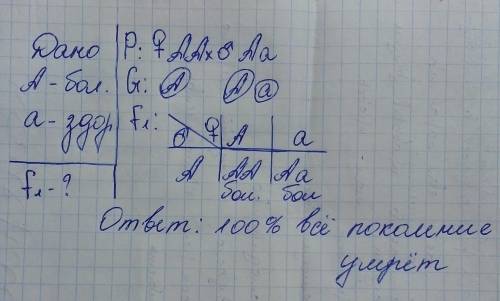 Дано P: ♀ AA x ♂ Aa
A - бол. G: A A a
a - здор F₁: ♂ ♀ A a
A AA Aa
F₁ - ? бол. бол
Ответ: 100% всё поколение
умрёт